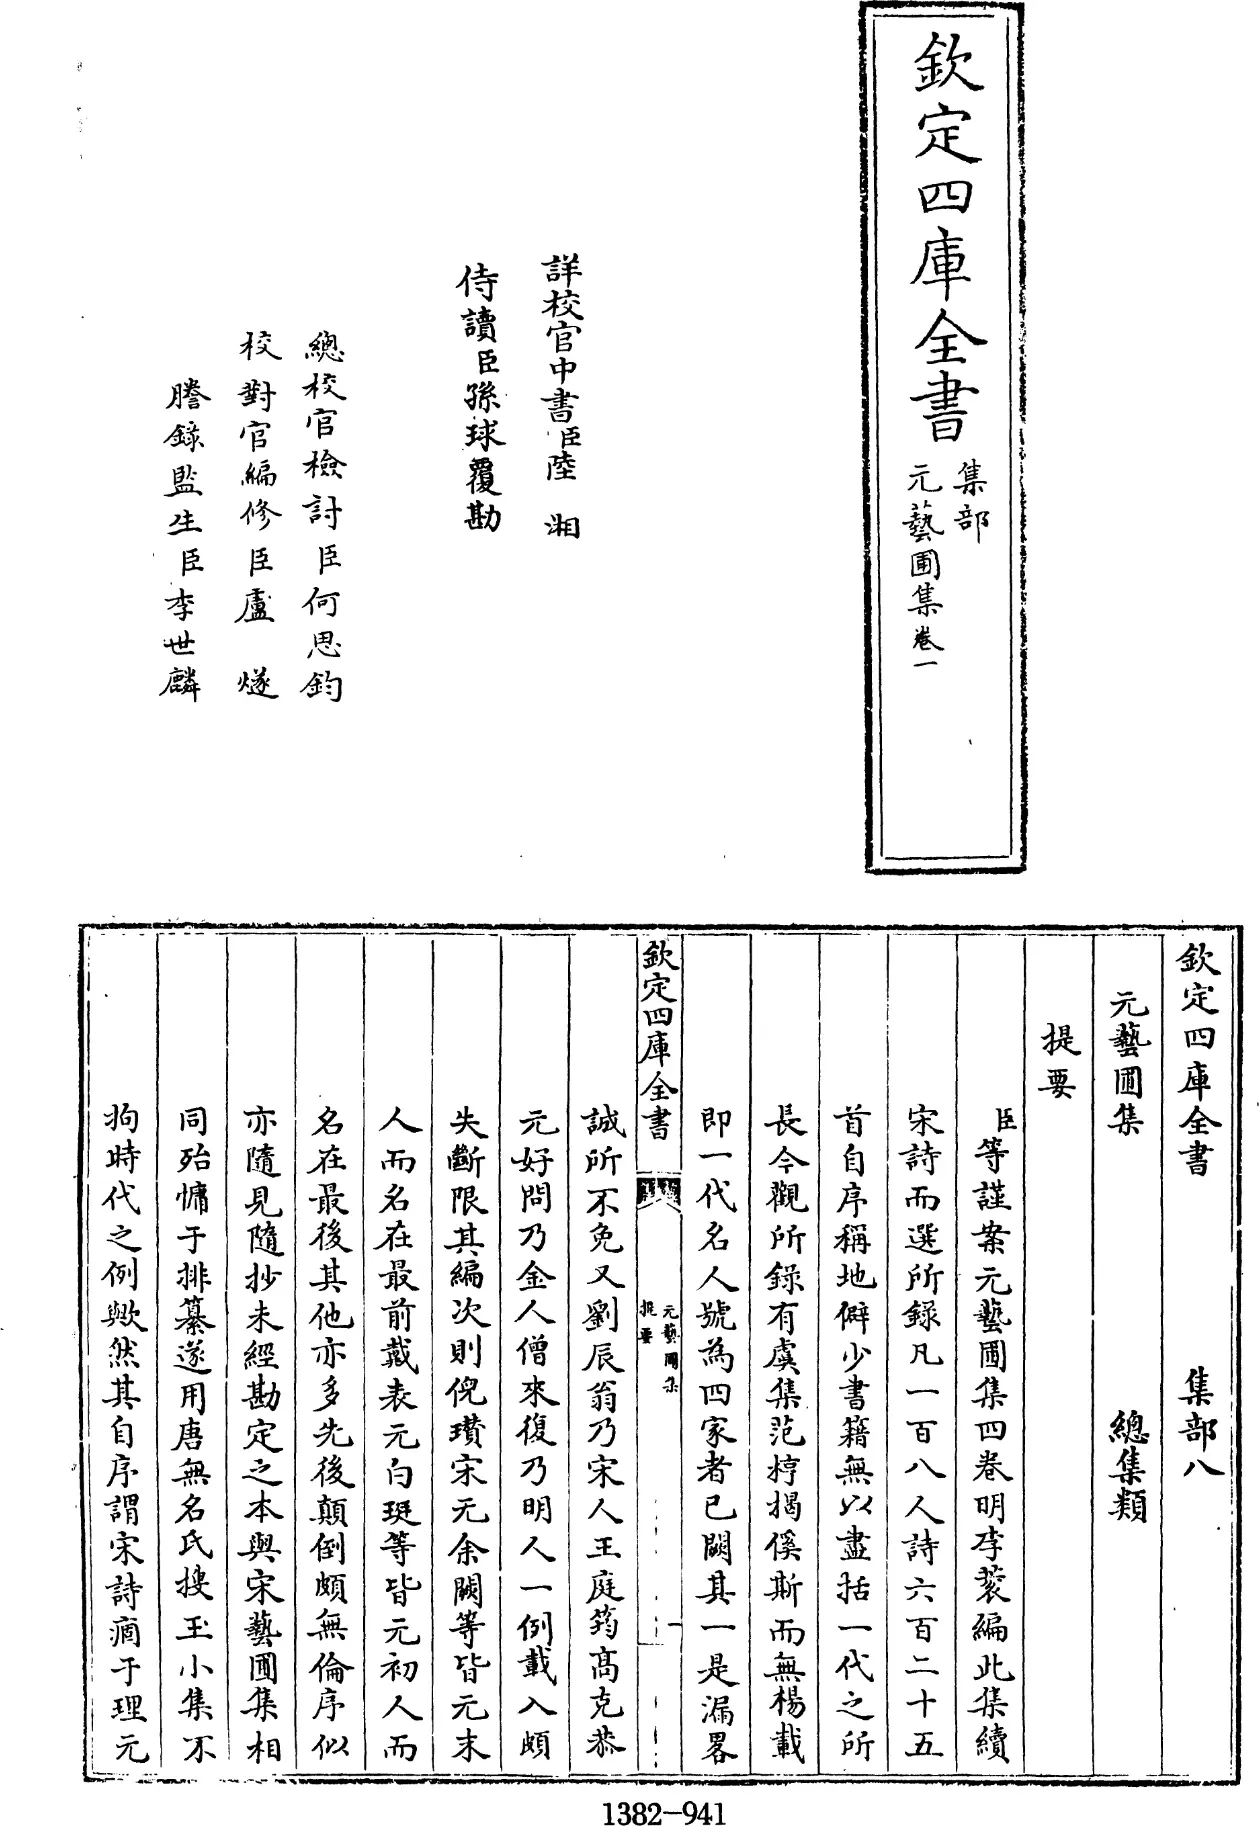 欽定四庫全書
集部
元藝圃集卷一
詳校官中書臣陸 湘
侍讀臣孫球覆勘
總校官檢討臣何思鈞
校對官編修臣盧 燧
謄錄監生臣李世麟
欽定四庫全書 集部八
元藝圃集 總集類
提要
臣等謹案元藝圃集四卷明李蓘編此集續
宋詩而選所錄凡一百八人詩六百二十五
首自序稱地僻少書籍無以盡括一代之所
長今觀所錄有虞集范梈揭傒斯而無楊載
即一代名人號為四家者已闕其一是漏畧
欽定四庫全書
元藝圃集
提要
一
誠所不免又劉辰翁乃宋人王庭筠高克恭
元好問乃金人僧來復乃明人一例載入頗
失斷限其編次則倪瓚宋元余闕等皆元末
人而名在最前戴表元白珽等皆元初人而
名在最後其他亦多先後顛倒頗無倫序似
亦隨見隨抄未經勘定之本與宋藝圃集相
同殆慵于排纂遂用唐無名氏搜玉小集不
拘時代之例歟然其自序謂宋詩痼于理元
1382-941